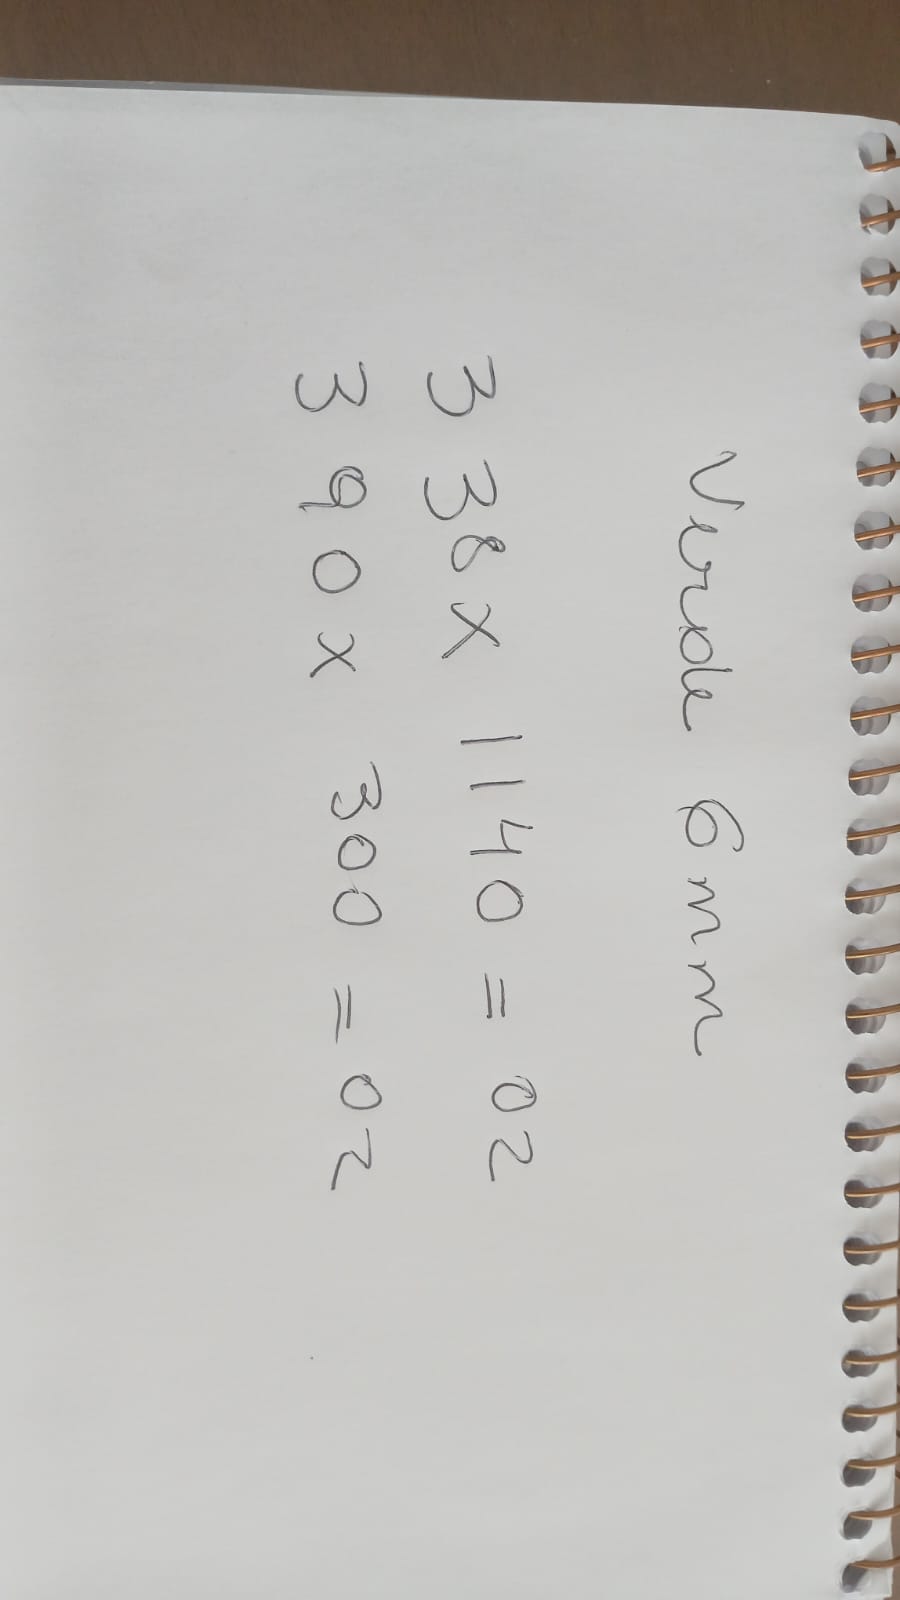 Verde 6mm
338X 1140 = 02
390X 300 = 02